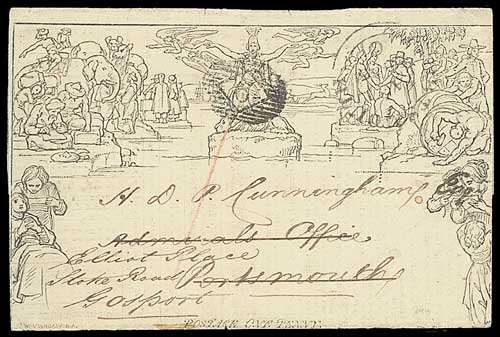 H. D. P. Cunningham,
Admirals Office,
Elliot Place
Stoke Road Portsmouth
Gosport
POSTAGE ONE PENNY.